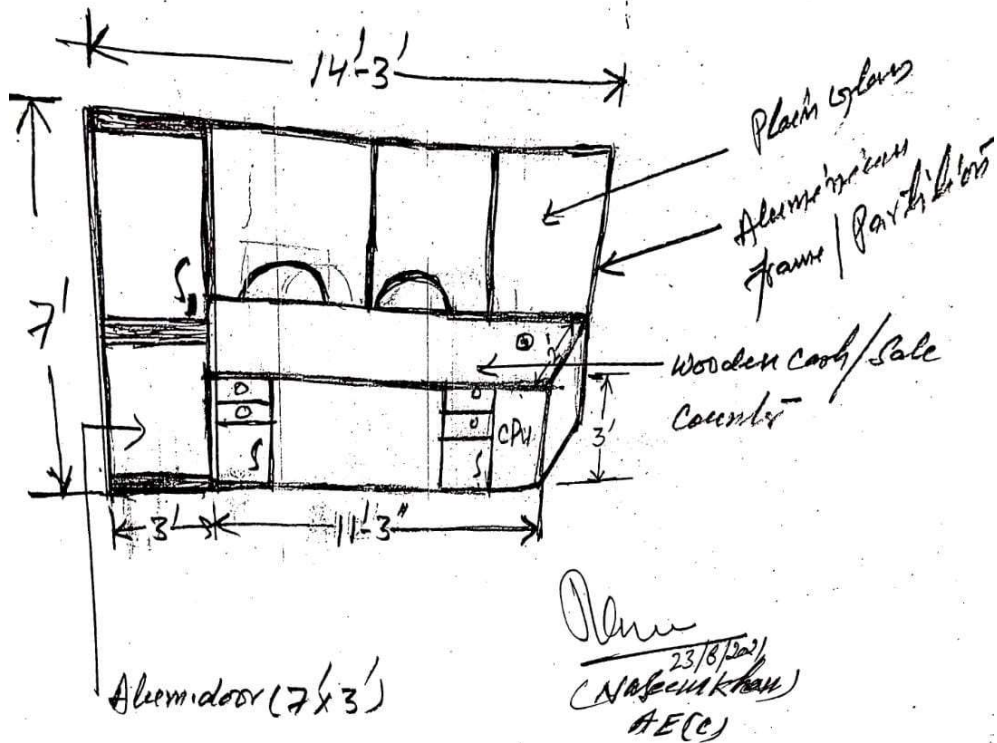 14'-3'
Plain glass
Alumenium
frame / Partition
7'
2'
wooden cash/Sale
Counter
CPU
3'
3'
11'-3"
Alumi door (7'x3')
23/8/2021
(Naseem Khan)
AE(C)